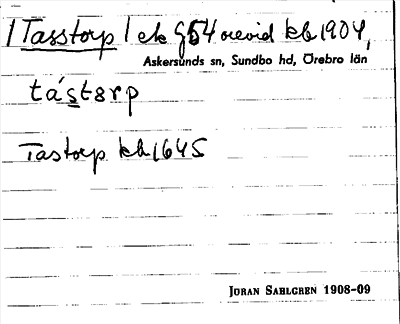 /Tasstorp/ ek G54 orevid kb 1904,
Askersunds sn, Sundbo hd, Örebro län
tástɜrp
Tastorp kb 1645
JÖRAN SAHLGREN 1908-09